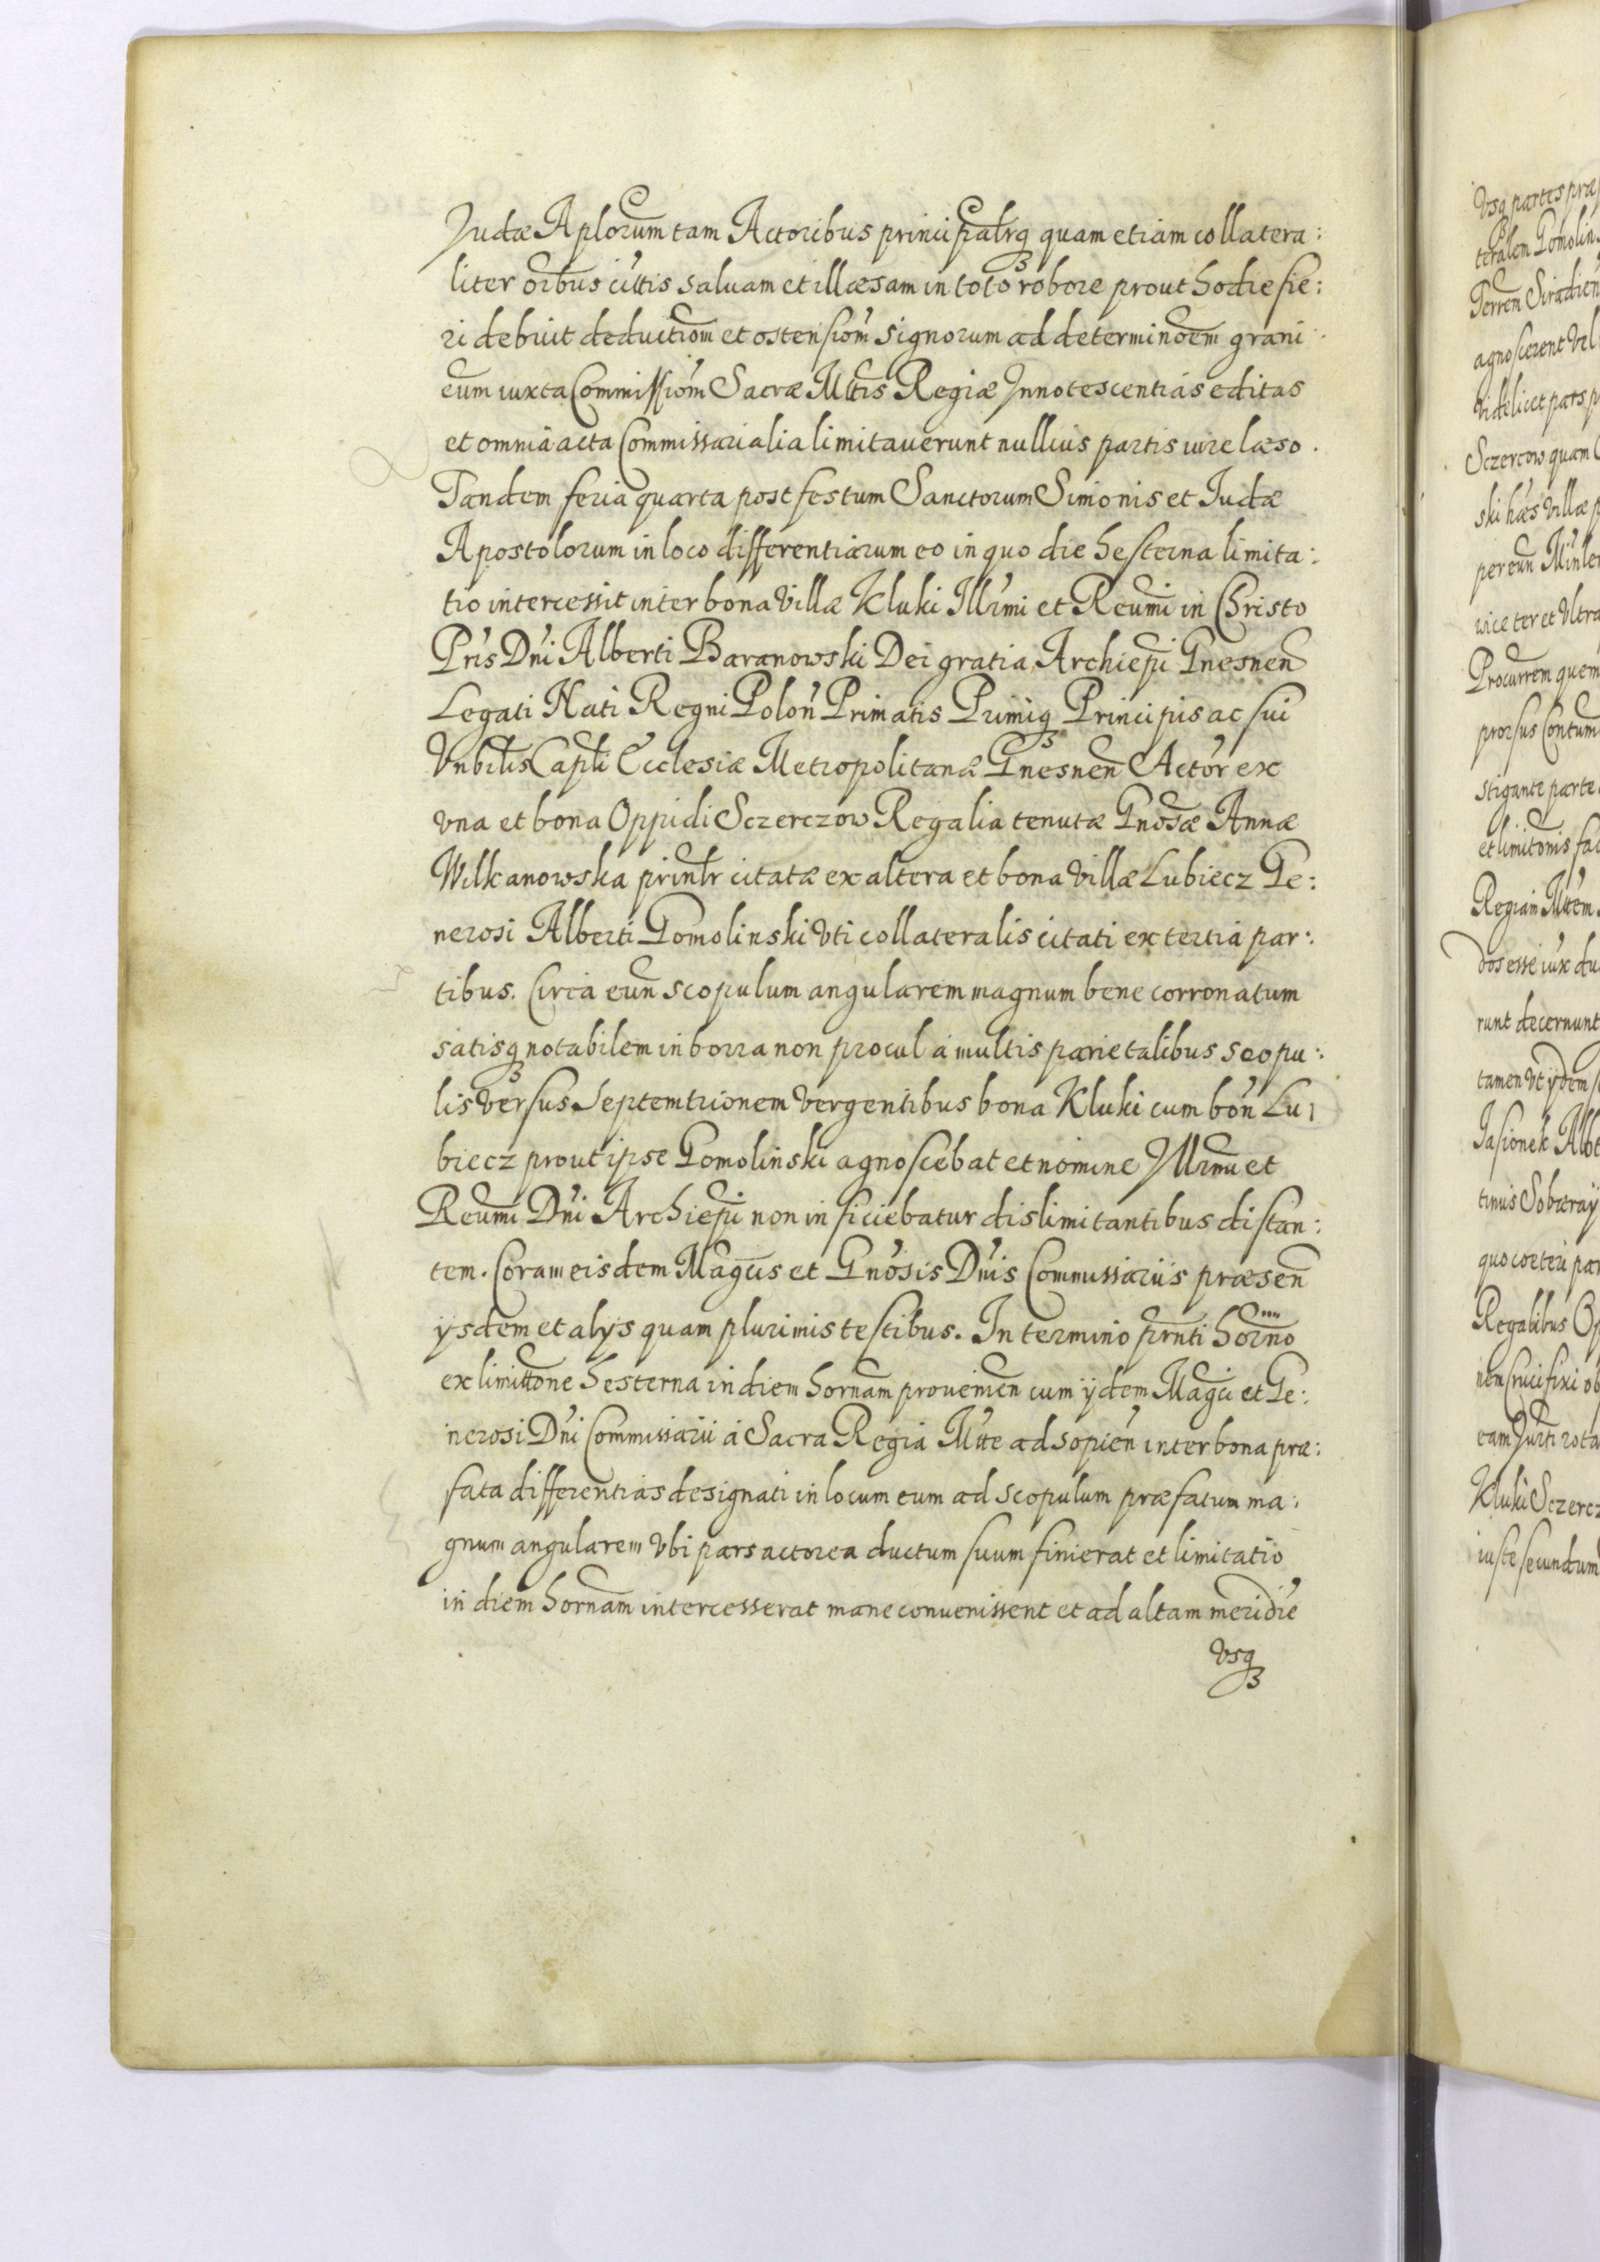 Judæ Aplorum tam Actoribus principalrq quam etiam collatera:
liter oibus cittis saluam et illæsam in toto robore prout hodie fie:
ri debuit deductiom et ostensiom signorum ad determinoem grani
eum iuxta Commissiom Sacræ Mttis Regiæ Innotescentias editas
et omnia acta Commissarialia limitauerunt nullius partis iure læso.
Tandem feria quarta post festum Sanctorum Simonis et Judæ
Apostolorum in loco differentiarum eo in quo die hesterna limita:
tio intercessit inter bona Villæ Kluki Illrmi et Reumi in Christo
Pris Dni Alberti Baranowski Dei gratia Archiepi Gnesnen
Legati Nati Regni Polon Primatis Primiq Principis ac sui
Vnbilis Capli Ecclesiæ Metropolitanæ Gnesnen Actor ex
vna et bona Oppidi Sczerczow Regalia tenutæ Gnosæ Annæ
Wilkanowska prinlr citatæ ex altera et bona villæ Lubiecz Ge:
nerosi Alberti Gomolinski Vti collateralis citati ex tertia par:
tibus. Circa eun scopulum angularem magnum bene corronatum
satisq notabilem in borra non procul a multis parietalibus scopu:
lis versus Septemtrionem vergentibus bona Kluki cum bon Lu
biecz prout ipse Gomolinski agnoscebat et nomine Illrmi et
Reumi Dni Archiepi non inficiebatur dislimitantibus distan:
tem. Coram eisdem Magcis et Gnosis Dnis Commissariis præsen
ysdem et alys quam plurimis testibus. In termino prnti horno
ex limittone hesterna in diem hornam prouenien cum ydem Magci et Ge:
nerosi Dni Commissarii a Sacra Regia Mtte ad sopien inter bona præ:
fata differentias designati in locum eum ad scopulum præfatum ma:
gnum angularem Vbi pars actorea ductum suum finierat et limitatio
in diem hornam intercesserat mane conuenissent et ad altam meridie
vsq
Vsq partes præ
teralem Gomolin
Terrem Siradien
agnoscerent Vel
Videlicet pars
Sczercow quam
ski hæs Villæ
per eun
vice ter et Vltra
Procurrem quem
prorsus Contum
stigante parte
et limitonis fac
Regiam Mttem
dos esse iux du
runt decernunt
tamen Vt ydem
Jasionek Albt
tinus Sobieray
quo coeteri par
Regalibus Op
nem Crucifixi ob
eam Jurti rota
Kluki Sczercz
iuste secundum